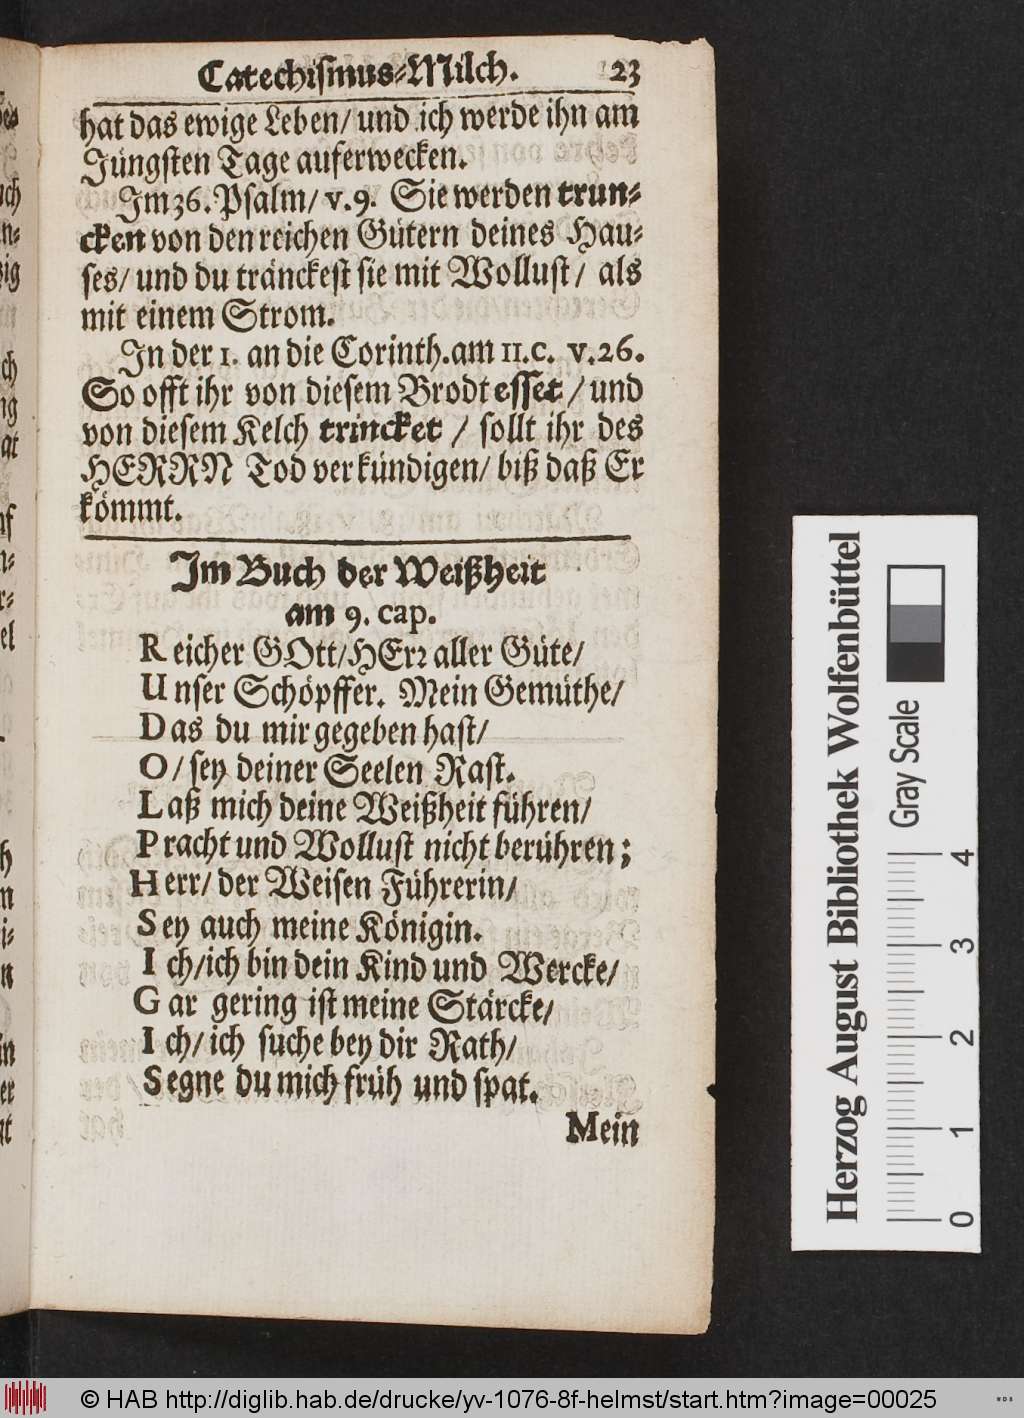 Catechismus-Milch. 23
hat das ewige Leben/ und ich werde ihn am
Jüngsten Tage auferwecken.
Im 36. Psalm/ v. 9. Sie werden trun-
cken von den reichen Gütern deines Hau-
ses/ und du tränckest sie mit Wollust/ als
mit einem Strom.
In der 1. an die Corinth. am 11. c. v. 26.
So offt ihr von diesem Brodt esset / und
von diesem Kelch trincket / sollt ihr des
HERRN Tod verkündigen/ biß daß Er
kömmt.
Im Buch der Weißheit
am 9. cap.
Reicher GOtt/ HErr aller Güte/
Unser Schöpffer. Mein Gemüthe/
Das du mir gegeben hast/
O/ sey deiner Seelen Rast.
Laß mich deine Weißheit führen/
Pracht und Wollust nicht berühren;
Herr/ der Weisen Führerin/
Sey auch meine Königin.
Ich/ ich bin dein Kind und Wercke/
Gar gering ist meine Stärcke/
Ich/ ich suche bey dir Rath/
Segne du mich früh und spat.
Mein
Herzog August Bibliothek Wolfenbüttel
Gray Scale
0 1 2 3 4
© HAB http://diglib.hab.de/drucke/yv-1076-8f-helmst/start.htm?image=00025